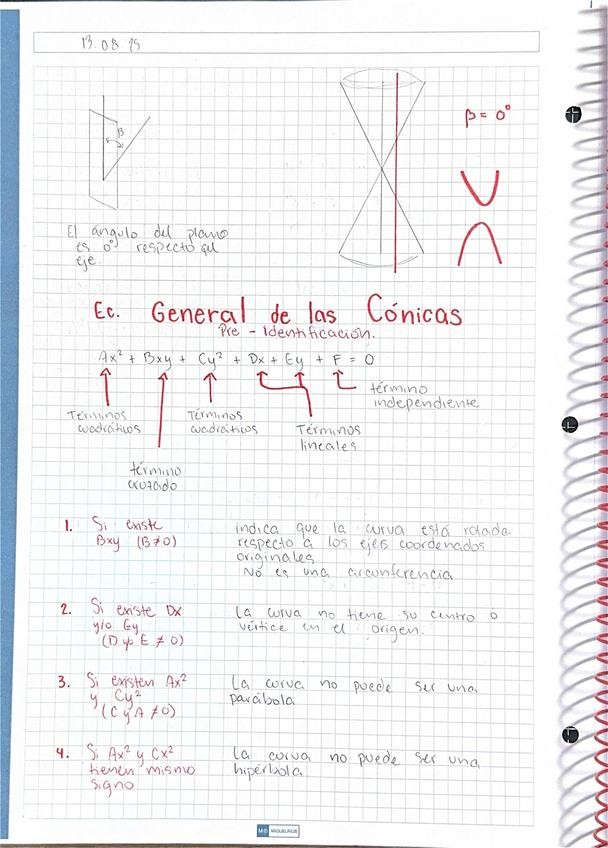 13.08.25
β
β = 0°
El ángulo del plano
es 0° respecto al
eje.
Ec. General de las Cónicas
Pre - Identificación.
Ax² + Bxy + Cy² + Dx + Ey + F = 0
término
independiente
Términos
cuadráticos
Términos
cuadráticos
Términos
lineales
término
cruzado
1. Si existe
Bxy (B≠0)
indica que la curva está rotada
respecto a los ejes coordenados
originales
No es una circunferencia
2. Si existe Dx
y/o Ey
(D y/o E ≠ 0)
La curva no tiene su centro o
vértice en el origen.
3. Si existen Ax²
y Cy²
(C y A ≠0)
La curva no puede ser una
parábola
4. Si Ax² y Cx²
tienen mismo
signo
La curva no puede ser una
hipérbola
MIQUELRIUS